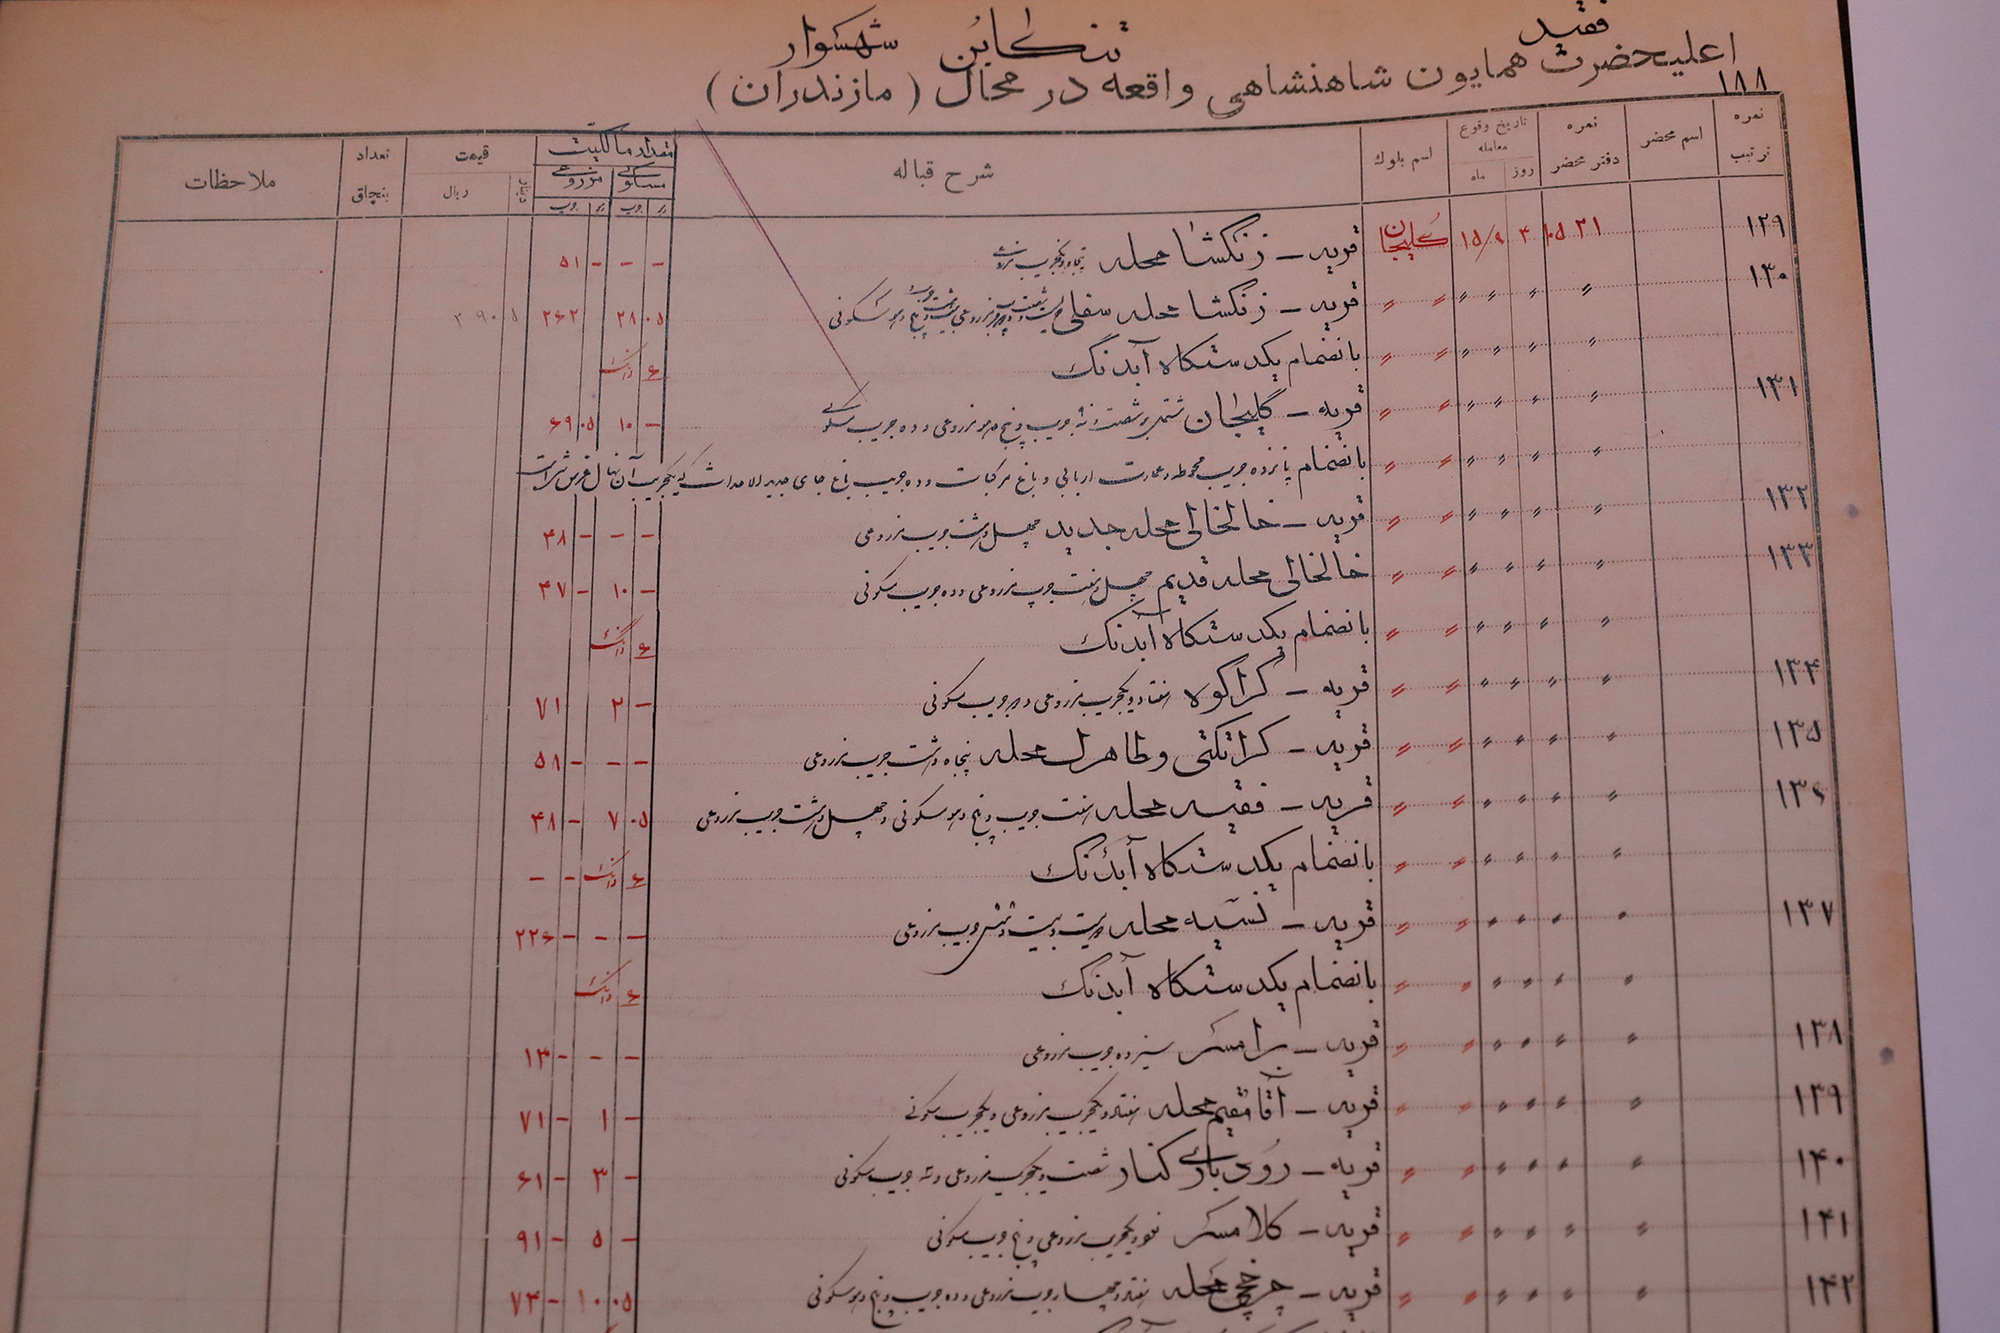 فقید
تنکابن شهسوار
اعلیحضرت همایون شاهنشاهی واقعه در محال (مازندران)
۱۸۸
نمره ترتیب اسم محضر نمره دفتر محضر تاریخ وقوع معامله روز ماه اسم بلوک شرح قباله تعداد مالکیت مسکونی مزروعی قیمت دینار ریال تعداد بنچاق ملاحظات
۱۲۹ ۲۱ ۱۰۵ ۴ ۱۵/۹ گلیجان قریه – زنگشا محله پنجاه و یکجریب مزروعی – – – ۵۱
۱۳۰ 〃 〃 〃 〃 〃 قریه – زنگشا محله سفلی ۰۵ ۲۸ ۲۶۲
〃 〃 〃 〃 〃 بانضمام یکدستگاه آبدنگ ۶ دانگ
۱۳۱ 〃 〃 〃 〃 〃 قریه – گلیجان مشتمل بر شصت و نه جریب و پنج دهو مزروعی و ده جریب مسکونی – ۱۰ ۰۵ ۶۹
〃 〃 〃 〃 〃 بانضمام پانزده جریب محوطه و عمارت اربابی و باغ مرکبات و ده جریب باغ چای جدید الاحداث که یکجریب آن نهال غرس شده است
۱۳۲ 〃 〃 〃 〃 〃 قریه – خالخالی محله جدید چهل و هشت جریب مزروعی – – – ۴۸
۱۳۳ 〃 〃 〃 〃 〃 خالخالی محله قدیم چهل و هفت جریب مزروعی و ده جریب مسکونی – ۱۰ – ۴۷
〃 〃 〃 〃 〃 بانضمام یکدستگاه آبدنگ ۶ دانگ
۱۳۴ 〃 〃 〃 〃 〃 قریه – کراکوه هفتاد و یکجریب مزروعی و دو جریب مسکونی – ۲ ۷۱
۱۳۵ 〃 〃 〃 〃 〃 قریه – کراتکتی و طاهر محله پنجاه و هشت جریب مزروعی – – – ۵۸
۱۳۶ 〃 〃 〃 〃 〃 قریه – فقیه محله هفت جریب و پنج دهو مسکونی و چهل و هشت جریب مزروعی ۰۵ ۷ – ۴۸
〃 〃 〃 〃 〃 بانضمام یکدستگاه آبدنگ ۶ دانگ – –
۱۳۷ 〃 〃 〃 〃 〃 قریه – نسیه محله دویست و بیست و شش جریب مزروعی – – – ۲۲۶
〃 〃 〃 〃 〃 بانضمام یکدستگاه آبدنگ ۶ دانگ
۱۳۸ 〃 〃 〃 〃 〃 قریه – برامسر سیزده جریب مزروعی – – – ۱۳
۱۳۹ 〃 〃 〃 〃 〃 قریه – آقا مقیم محله هفتاد و یکجریب مزروعی و یکجریب مسکونی – ۱ – ۷۱
۱۴۰ 〃 〃 〃 〃 〃 قریه – رودباری کنار شصت و یکجریب مزروعی و سه جریب مسکونی – ۳ – ۶۱
۱۴۱ 〃 〃 〃 〃 〃 قریه – کلامسر نود و یکجریب مزروعی و پنج جریب مسکونی – ۵ – ۹۱
۱۴۲ 〃 〃 〃 〃 〃 قریه – چرخچی محله هفتاد و چهار جریب مزروعی و ده جریب و پنج دهو مسکونی ۰۵ ۱۰ – ۷۴